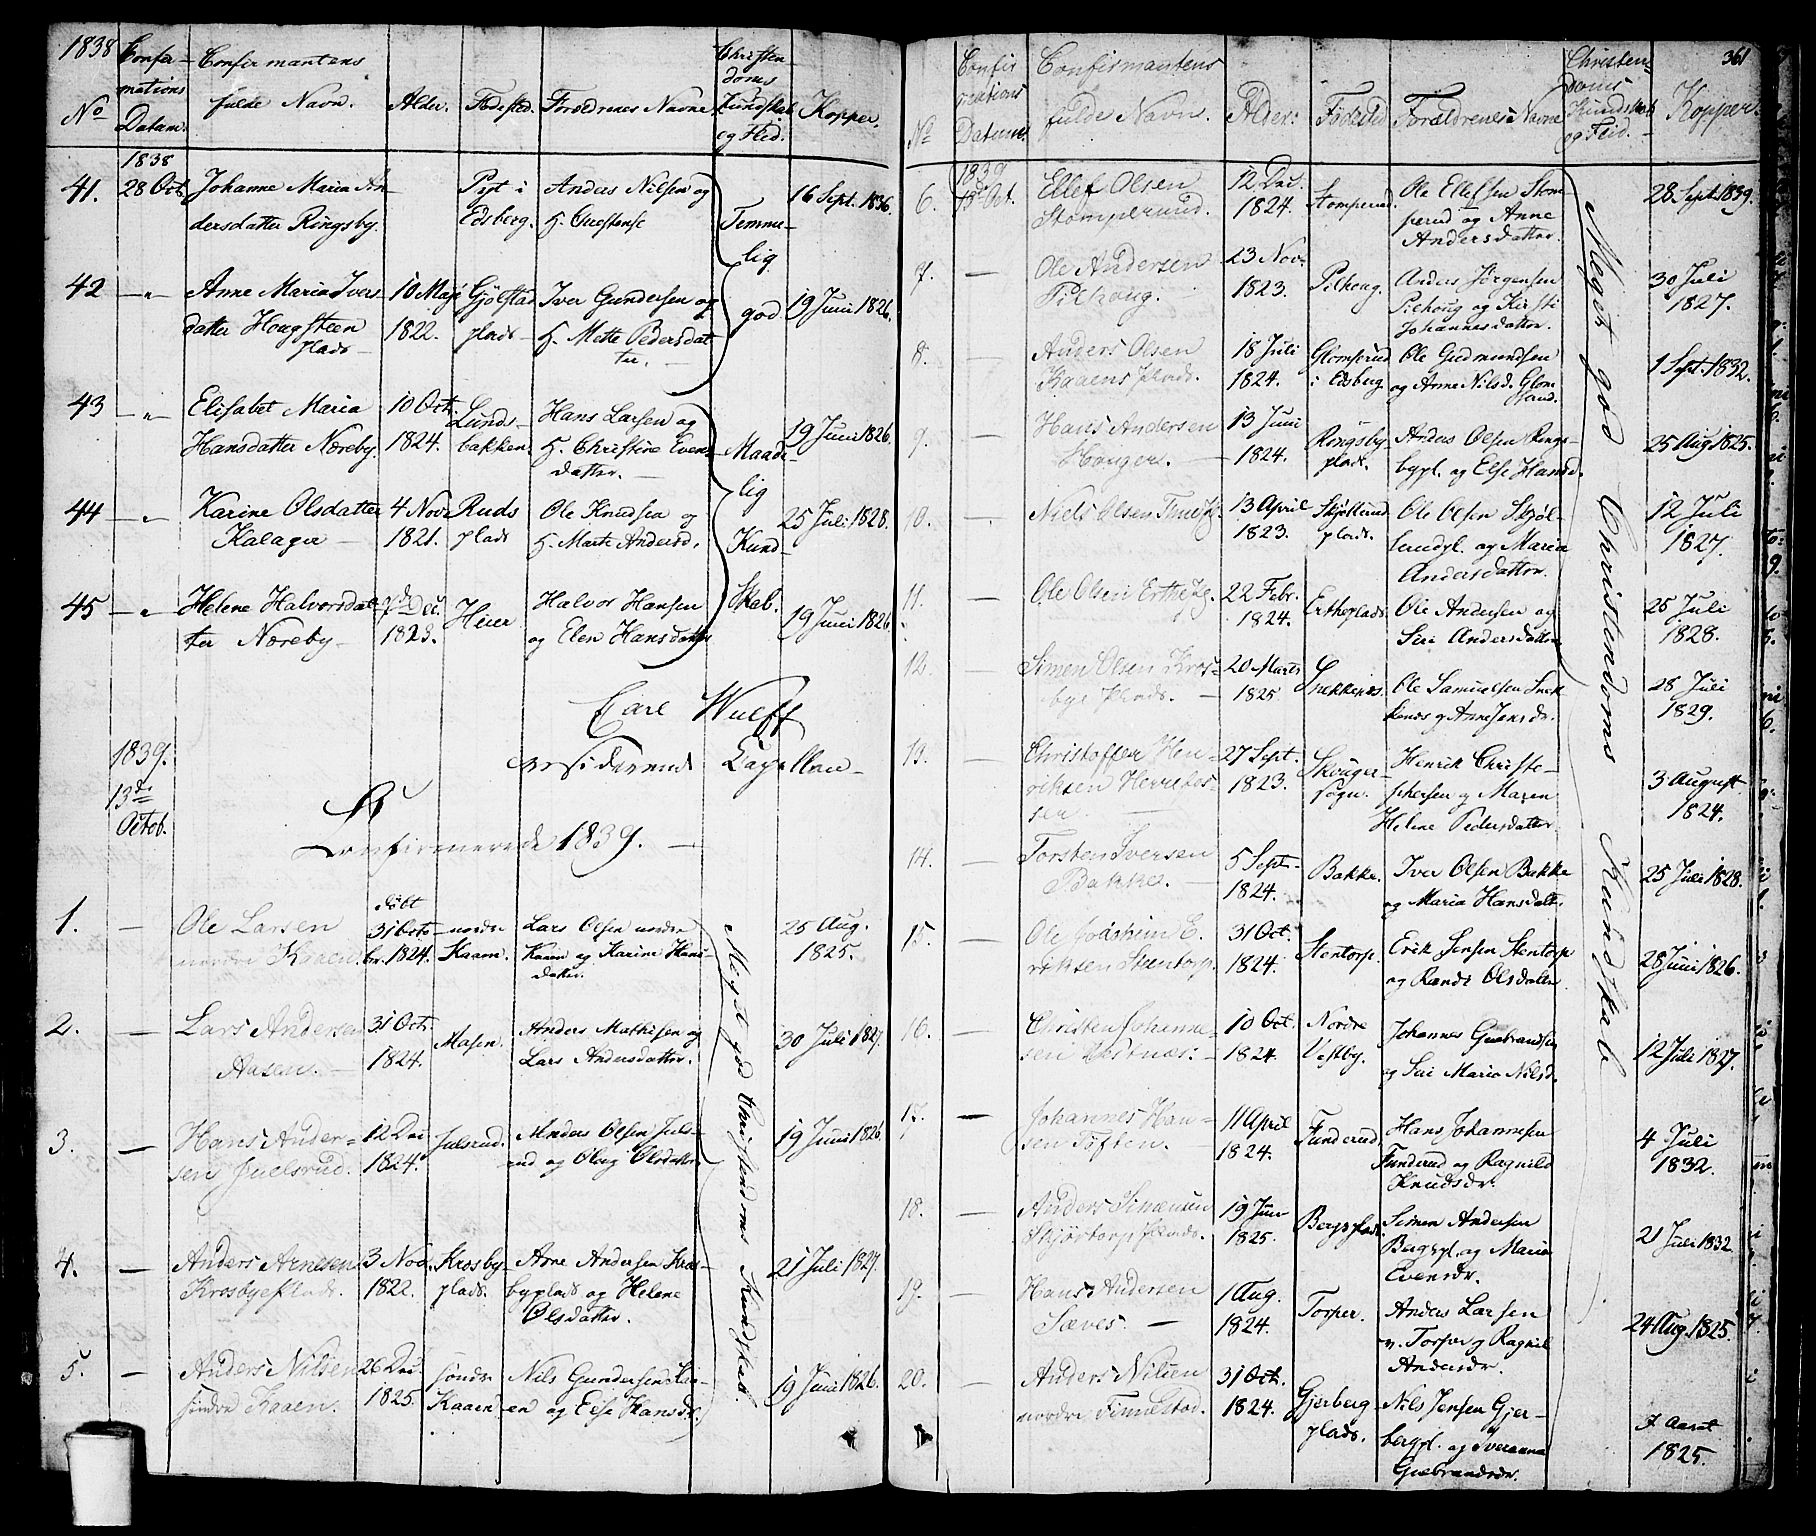 1838
Confir-
mations
Datum.
No
Confirmantens
fulde Navn.
Alder.
Fødested.
Forældrenes Navne
Christen-
doms
Kundskab
og Flid.
Kopper.
1838
41. 28 Oct. Johanne Maria An-
dersdatter Ringsby.
Edsberg.
Anders Nilsen og
H.
16 Sept. 1836.
Temme-
lig
god
42 —"— Anne Maria Ivers
datter Hougsteen
plads —
10 Maji
1822.
Gjølstad
plads —
Iver Gundersen og
H. Mette Pedersdat-
ter. —
19 Juni 1826.
43 —"— Elisabet Maria
Hansdatter Nøreby.
10 Oct.
1824.
Lunds-
bakken.
Hans Larsen og
H. Christine Evens
datter. —
19 Juni 1826.
Maade-
lig
Kund-
skab.
44 —"— Karine Olsdatter
Kalager —
4 Nov.
1821.
Ruds
plads
Ole Knudsen og
H. Marte Andersd.
25 Juli 1828.
45 —"— Helene Halvorsdat-
ter Nøreby —
1823.
Heier
Halvor Hansen
og Elen Hansdatter
19 Juni 1826
Carl Wulff
residerende Capellan —
1839.
13de
Octob.
Confirmerede 1839. —
1. — Ole Larsen
nordre Kaaen
døbt
31 Octo-
ber. 1824.
nordre
Kaaen.
Lars Olsen nordre
Kaaen og Karine Hans-
datter.
25 Aug.
1825.
Meget god Christendoms Kundskab.
2. — Lars Andersen
Aasen. —
31 Octr
1824.
Aasen.
Anders Mathisen og
Lars Andersdatter.
30 Juli 1827.
3. — Hans Ander-
sen Juelsrud.
12 Dec.
1824.
Julsrud.
Anders Olsen Juls-
rud og Oloug Olsdatter
19 Juni 1826.
4. — Anders Arnesen
Krosbyeplads.
3 Nov.
1822.
Krosby-
plads.
Arne Andersen Kros-
byplads og Helene
Olsdatter.
21 Juli 1827.
5. — Anders Nilsen
søndre Kaaen.
26 Dec.
1825.
søndr
Kaaen
Nils Gundersen Kaa-
en og Else Hansdr.
19 Juni 1826.
361
No
Confir
mations
Datum.
Confirmantens
fulde Navn.
Alder.
Fødested
Forældrenes Navne
Christen-
doms
Kundskab
og Flid.
Kopper.
1839
6. 13 Oct. Ellef Olsen
Stomperud.
12 Dec.
1824.
Stomperud.
Ole Ellefsen Stom
perud og Anne
Andersdatter.
28 Sept. 1839.
Meget god Christendoms Kundskab
7. — Ole Andersen
Pilhoug.
23 Nov.
1823.
Pilhoug.
Anders Jørgensen
Pilhoug og Kirsti
Johannesdatter.
30 Juli
1827.
8. Anders Olsen
Kaaens plads.
18 Juli
1824.
Glomsrud
i Edsberg
Ole Gudmundsen
og Anne Nilsd.
1 Sept. 1832.
9. — Hans Andersen
Houger. —
13 Juni
1824.
Ringsby
plads.
Anders Olsen Rings-
bypl. og Else Hansd.
25 Aug 1825.
10. — Niels Olsen
13 April
1823.
Skjøllrud
plads.
Ole Olsen Skjøl-
lrudpl. og Maria
Andersdatter.
12 Juli
1827.
11. — Ole Olsen
22 Febr.
1824.
Ertheplads.
Ole Andersen og
Siri Andersdatter
25 Juli
1828.
12. — Simen Olsen Kros-
bye plads. —
20 Marts
1825
Snekkenes.
Ole Samuelsen Snek
kenæs og Anne Jensdr.
28 Juli
1829.
13. — Christoffer Hen-
riksen
27 Sept.
1823.
Skouger-
sogn.
Henrik Christo-
phersen og Maren
Helene Pedersdatter.
3 August
1824.
14. — Torsten Iversen
Bakke. —
5 Sept.
1824.
Bakke.
Iver Olsen Bakke
og Maria Hansdatt.
25 Juli 1828.
15. — Ole Joachim E-
riksen Steentorp.
31 Oct.
1824.
Stentorp.
Erik Jensen Stentorp
og Randi Olsdatter
28 Juni 1826.
16. — Christen Johanne-
sen
10 Oct.
1824.
Nordre
Vestby.
Johannes Gulbrandsen
og Siri Maria Nilsd.
12 Juli 1827.
17. — Johannes Han-
sen Toften.
11 April
1824.
Funderud
Hans Johannesen
Funderud og Ragnild
Knudsdr.
4 Juli
1832.
18. — Anders Simensen
Skjørtorp plads.
19 Juni
1825.
Bergsplads.
Simen Andersen
Bergspl. og Maria
Evensdr.
21 Juli 1832
19. — Hans Andersen
Sæves. —
1 Aug.
1824.
Torper.
Anders Larsen
n. Torper og Ragnil
Andersdr.
24 Aug. 1825.
20. — Anders Nilsen
nordre Fimelstad.
31 Oct.
1824.
Gjerberg
plads.
Nils Jensen Gjer-
bergpl. og
Gulbrandsdr.
1825.